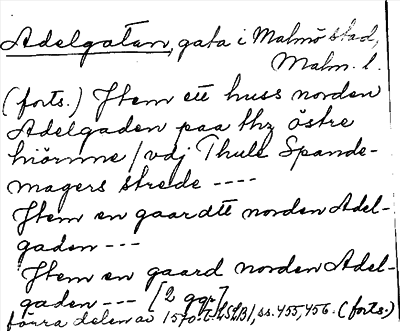 Adelgatan, gata i Malmö stad,
Malm. l.
(forts.) Jtem ett huss norden
Adelgaden paa thz östre
hiörnne / vdj Thule Spande-
magers strede ----
Jtem en gaardtt norden Adel-
gaden ---
Jtem en gaard norden Adel-
gaden --- [2 ggr]
förra delen av 1570-t. ss. 455, 456. (forts.)